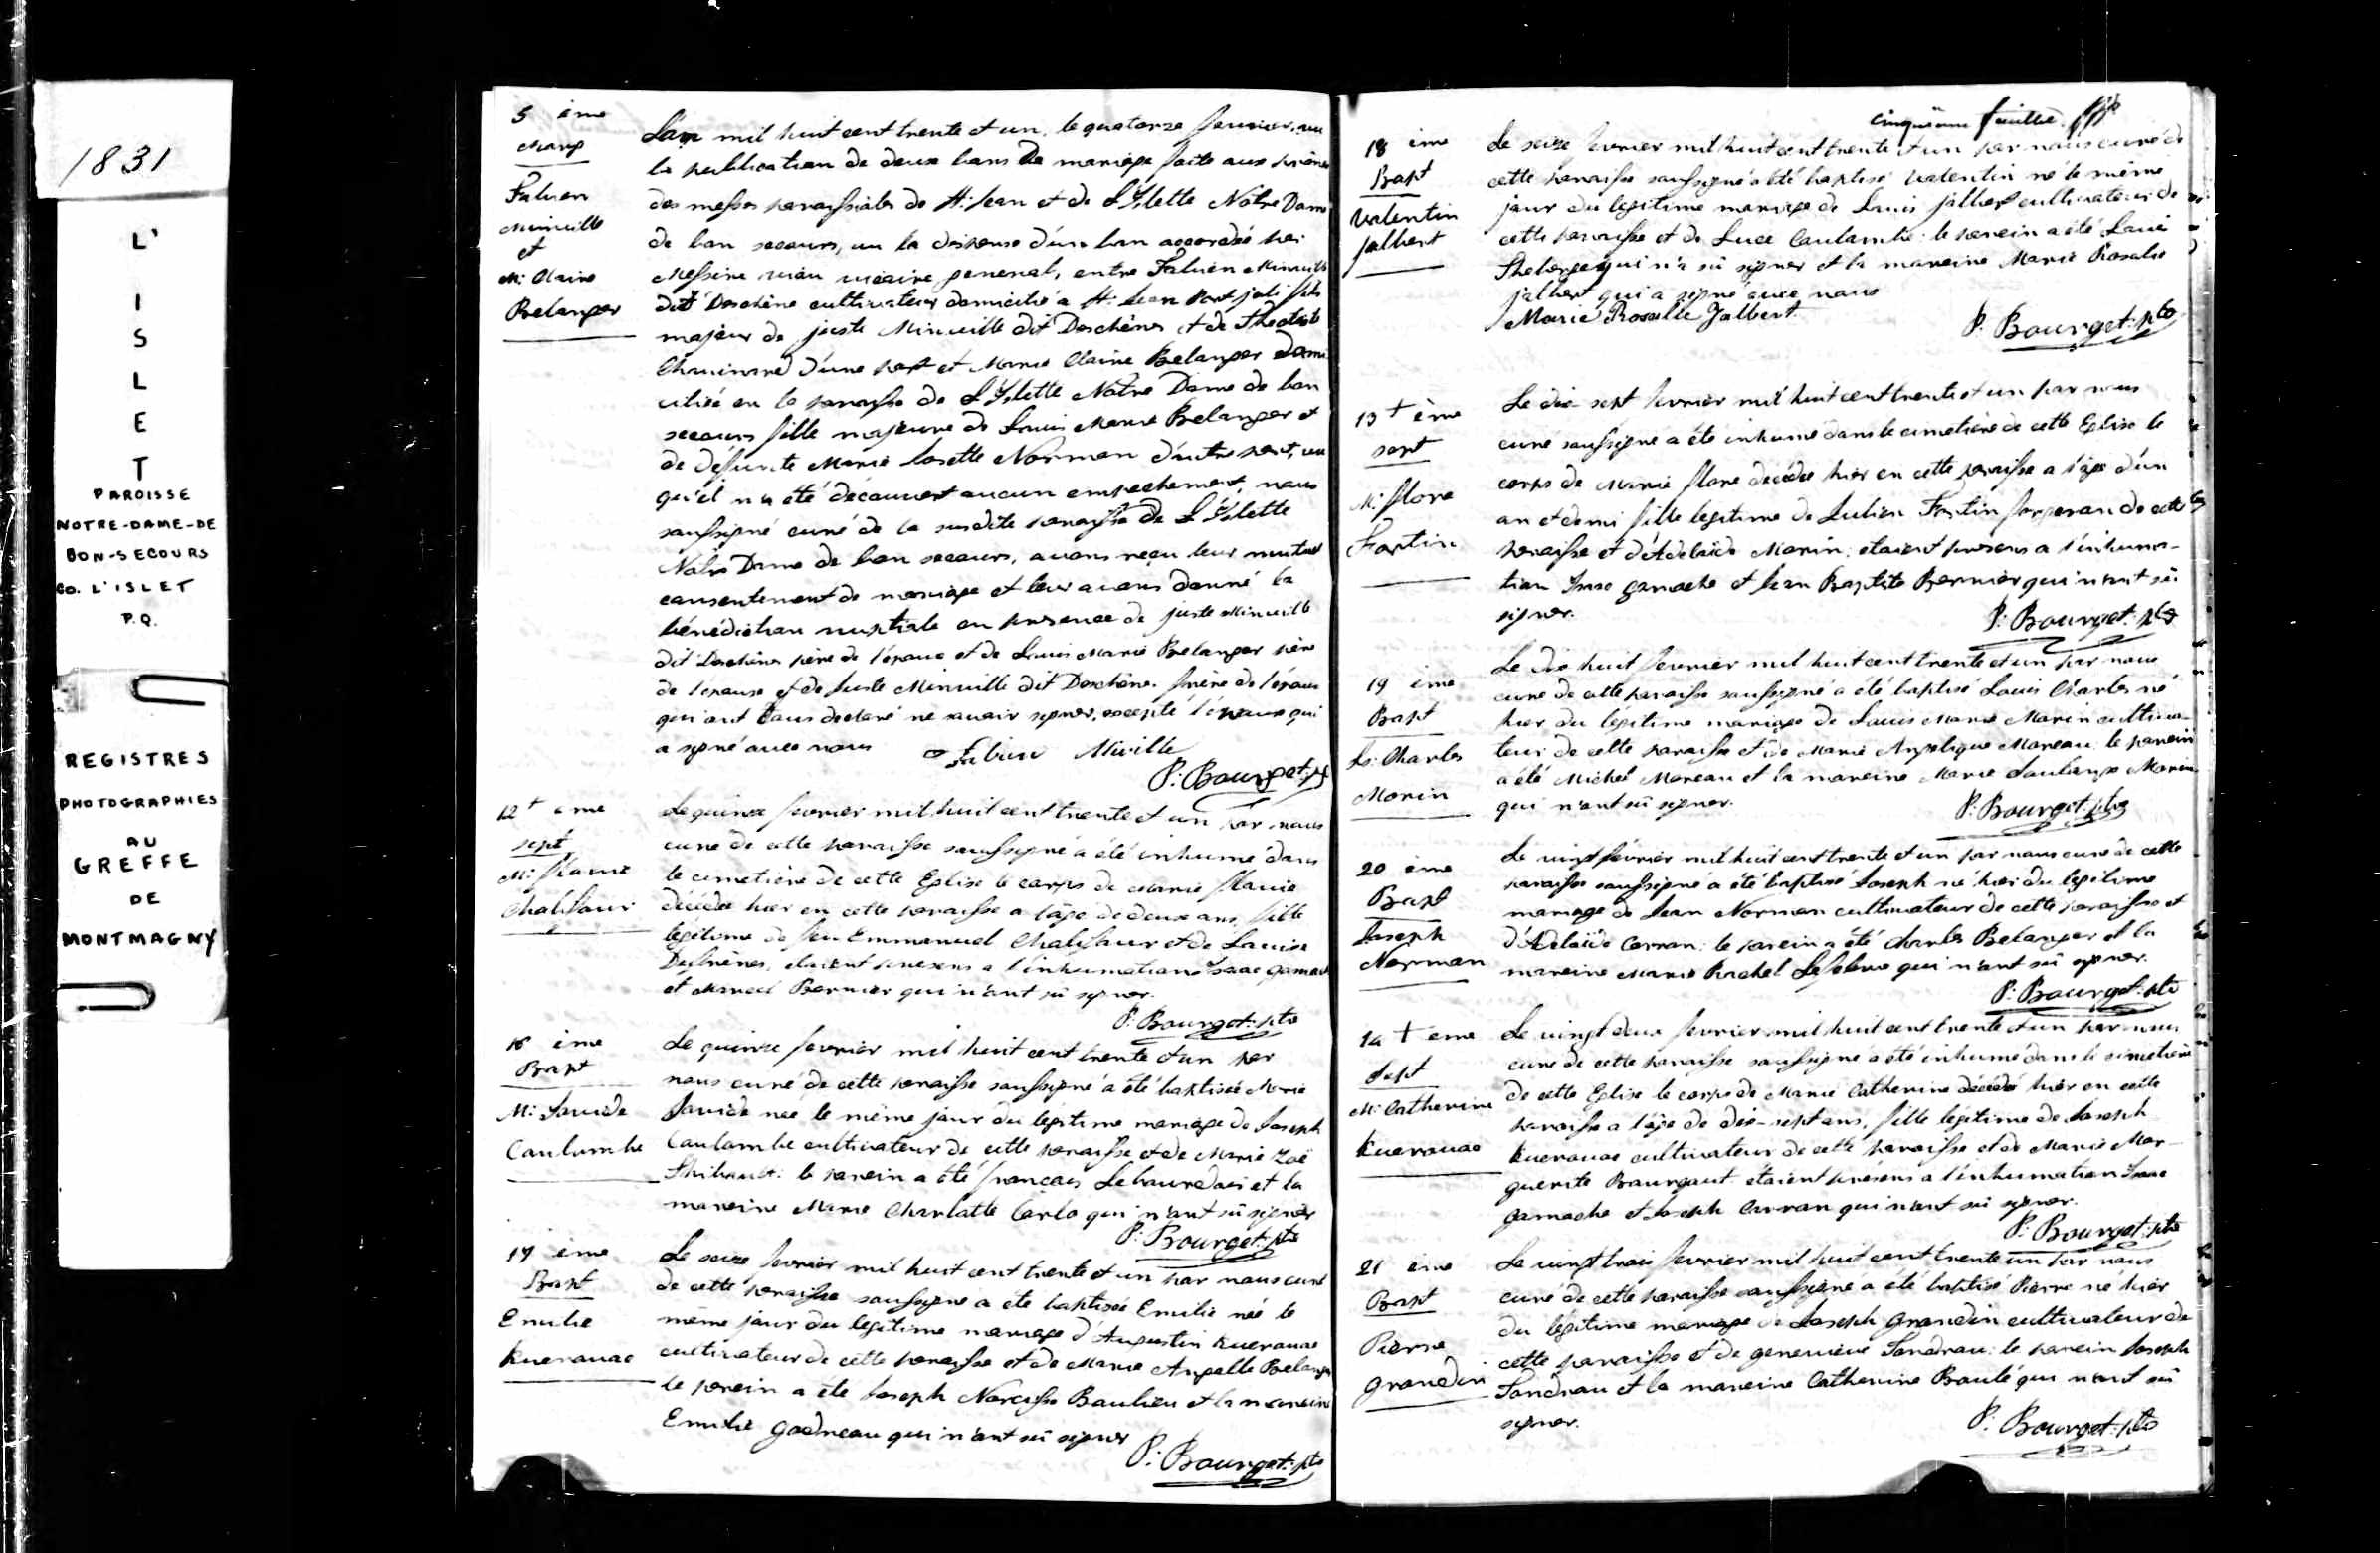 1831
L'
I
S
L
E
T
PAROISSE
NOTRE-DAME-DE
BON-SECOURS
CO. L'ISLET
P.Q.
REGISTRES
PHOTOGRAPHIES
AU
GREFFE
DE
MONTMAGNY
5 ème
Marg
Fabien
Minville
et
M: Claire
Belanger
L'an mil huit cent trente et un, le quatorze fevrier, vu
la publication de deux bans de mariage faite aux prônes
des messes paroissiales de St: Jean et de L'Islette Notre Dame
de bon secours, vu la dispense d'un ban accordée par
Messire vicaire general, entre Fabien Minville
dit Deschêne cultivateur domicilié a St: Jean Port joli fils
majeur de juste Minville dit Deschênes et de
Chouinard d'une part et Marie Claire Belanger domi
cilié en la paroisse de L'Islette Notre Dame de bon
secours fille majeure de Louis Marie Belanger et
de defunte Marie Josette Norman d'autre part, vu
qu'il n'a été découvert aucun empechement, nous
soussigné curé de la susdite paroisse de L'Islette
Notre Dame de bon secours, avons reçu leur mutuel
consentement de mariage et leur avons donné la
bénédiction nuptiale en presence de juste Minville
dit Deschênes père de l'époux et de Louis Marie Belanger père
de l'epouse et de Juste Minville dit Deschêne frère de l'époux
qui ont tous declaré ne savoir signer, excepté l'epoux qui
a signé avec nous Fabien Miville
P: Bourget: ptre
12 + eme
sept
M: flavie
Chalifour
Le quinze fevrier mil huit cent trente et un par nous
curé de cette paroisse soussigné a été inhumé dans
le cimetière de cette Eglise le corps de Marie flavie
décédée hier en cette paroisse a l'âge de deux ans, fille
legitime de feu Emmanuel Chalifour et de Louise
étaient presens a l'inhumation Isaac gamache
et Bernier qui n'ont sû signer.
P: Bourget: ptre
16 ème
Bapt
M:
Coulombe
Le quinze fevrier mil huit cent trente et un par
nous curé de cette paroisse soussigné a été baptisée Marie
née le même jour du legitime mariage de Joseph
Coulombe cultivateur de cette paroisse et de Marie Zoë
Thibault: le parein a été françois Lebourdais et la
mareine Marie Charlotte qui n'ont sû signer
P: Bourget: ptre
17 ème
Bapt
Emilie
Kuerouac
Le seize fevrier mil huit cent trente et un par nous curé
de cette paroisse soussigné a été baptisée Emilie née le
même jour du legitime mariage d'Augustin Kuerouac
cultivateur de cette paroisse et de Marie Angelle Belanger
le parein a été Joseph Narcisse Baulieu et la mareine
Emilie qui n'ont sû signer
P: Bourget: ptre
cinquième feuillet
18 ème
Bapt
Valentin
jalbert
Le seize fevrier mil huit cent trente et un par nous curé de
cette paroisse soussigné a été baptisé Valentin né le même
jour du legitime mariage de Louis jalbert cultivateur de
cette paroisse et de Luce Coulombe: le parein a été Louis
qui n'a sû signer et la mareine Marie Rosalie
jalbert qui a signé avec nous
Marie Rosalie Jalbert
P: Bourget: ptre
13 + ème
sept
M: flore
Fortin
Le dix-sept fevrier mil huit cent trente et un par nous
curé soussigné a été inhumé dans le cimetière de cette Eglise le
corps de Marie flore décédée hier en cette paroisse a l'age d'un
an et demi fille legitime de Julien Fortin forgeron de cette
paroisse et d'Adelaïde Morin: etaient presens a l'inhuma-
tion Isaac gamache et Jean Baptiste Bernier qui n'ont sû
signer.
P: Bourget: ptre
19 ème
Bapt
Ls: Charles
Morin
Le dix huit fevrier mil huit cent trente et un par nous
curé de cette paroisse soussigné a été baptisé Louis Charles né
hier du legitime mariage de Louis Marie Morin cultiva-
teur de cette paroisse et de Marie Angelique Moreau: le parein
a été Michel Moreau et la mareine Marie Soulange Morin
qui n'ont sû signer.
P: Bourget: ptre
20 ème
Bapt
Joseph
Norman
Le vingt fevrier mil huit cent trente et un par nous curé de cette
paroisse soussigné a été baptisé Joseph né hier du legitime
mariage de Jean Norman cultivateur de cette paroisse et
d'Adelaïde Carran: le parein a été Charles Belanger et la
mareine Marie Rachel Lefebvre qui n'ont sû signer.
P: Bourget: ptre
14 + eme
Sept
M: Catherine
Kuerouac
Le vingt deux fevrier mil huit cent trente et un par nous
curé de cette paroisse soussigné a été inhumé dans le cimetière
de cette Eglise le corps de Marie Catherine décédé hier en cette
paroisse a l'âge de dix-sept ans, fille legitime de Joseph
Kuerouac cultivateur de cette paroisse et de Marie Mar-
guerite Bourgaut. étaient présens a l'inhumation Isaac
gamache et Joseph Carran qui n'ont sû signer.
P: Bourget: ptre
21 ème
Bapt
Pierre
grandin
Le vingt trois fevrier mil huit cent trente un par nous
curé de cette paroisse soussigné a été baptisé Pierre né hier
du légitime mariage de Joseph grandin cultivateur de
cette paroisse et de genevieve Jondrau: le parein Joseph
Jondrau et la mareine Catherine Boulé qui n'ont sû
signer.
P: Bourget: ptre